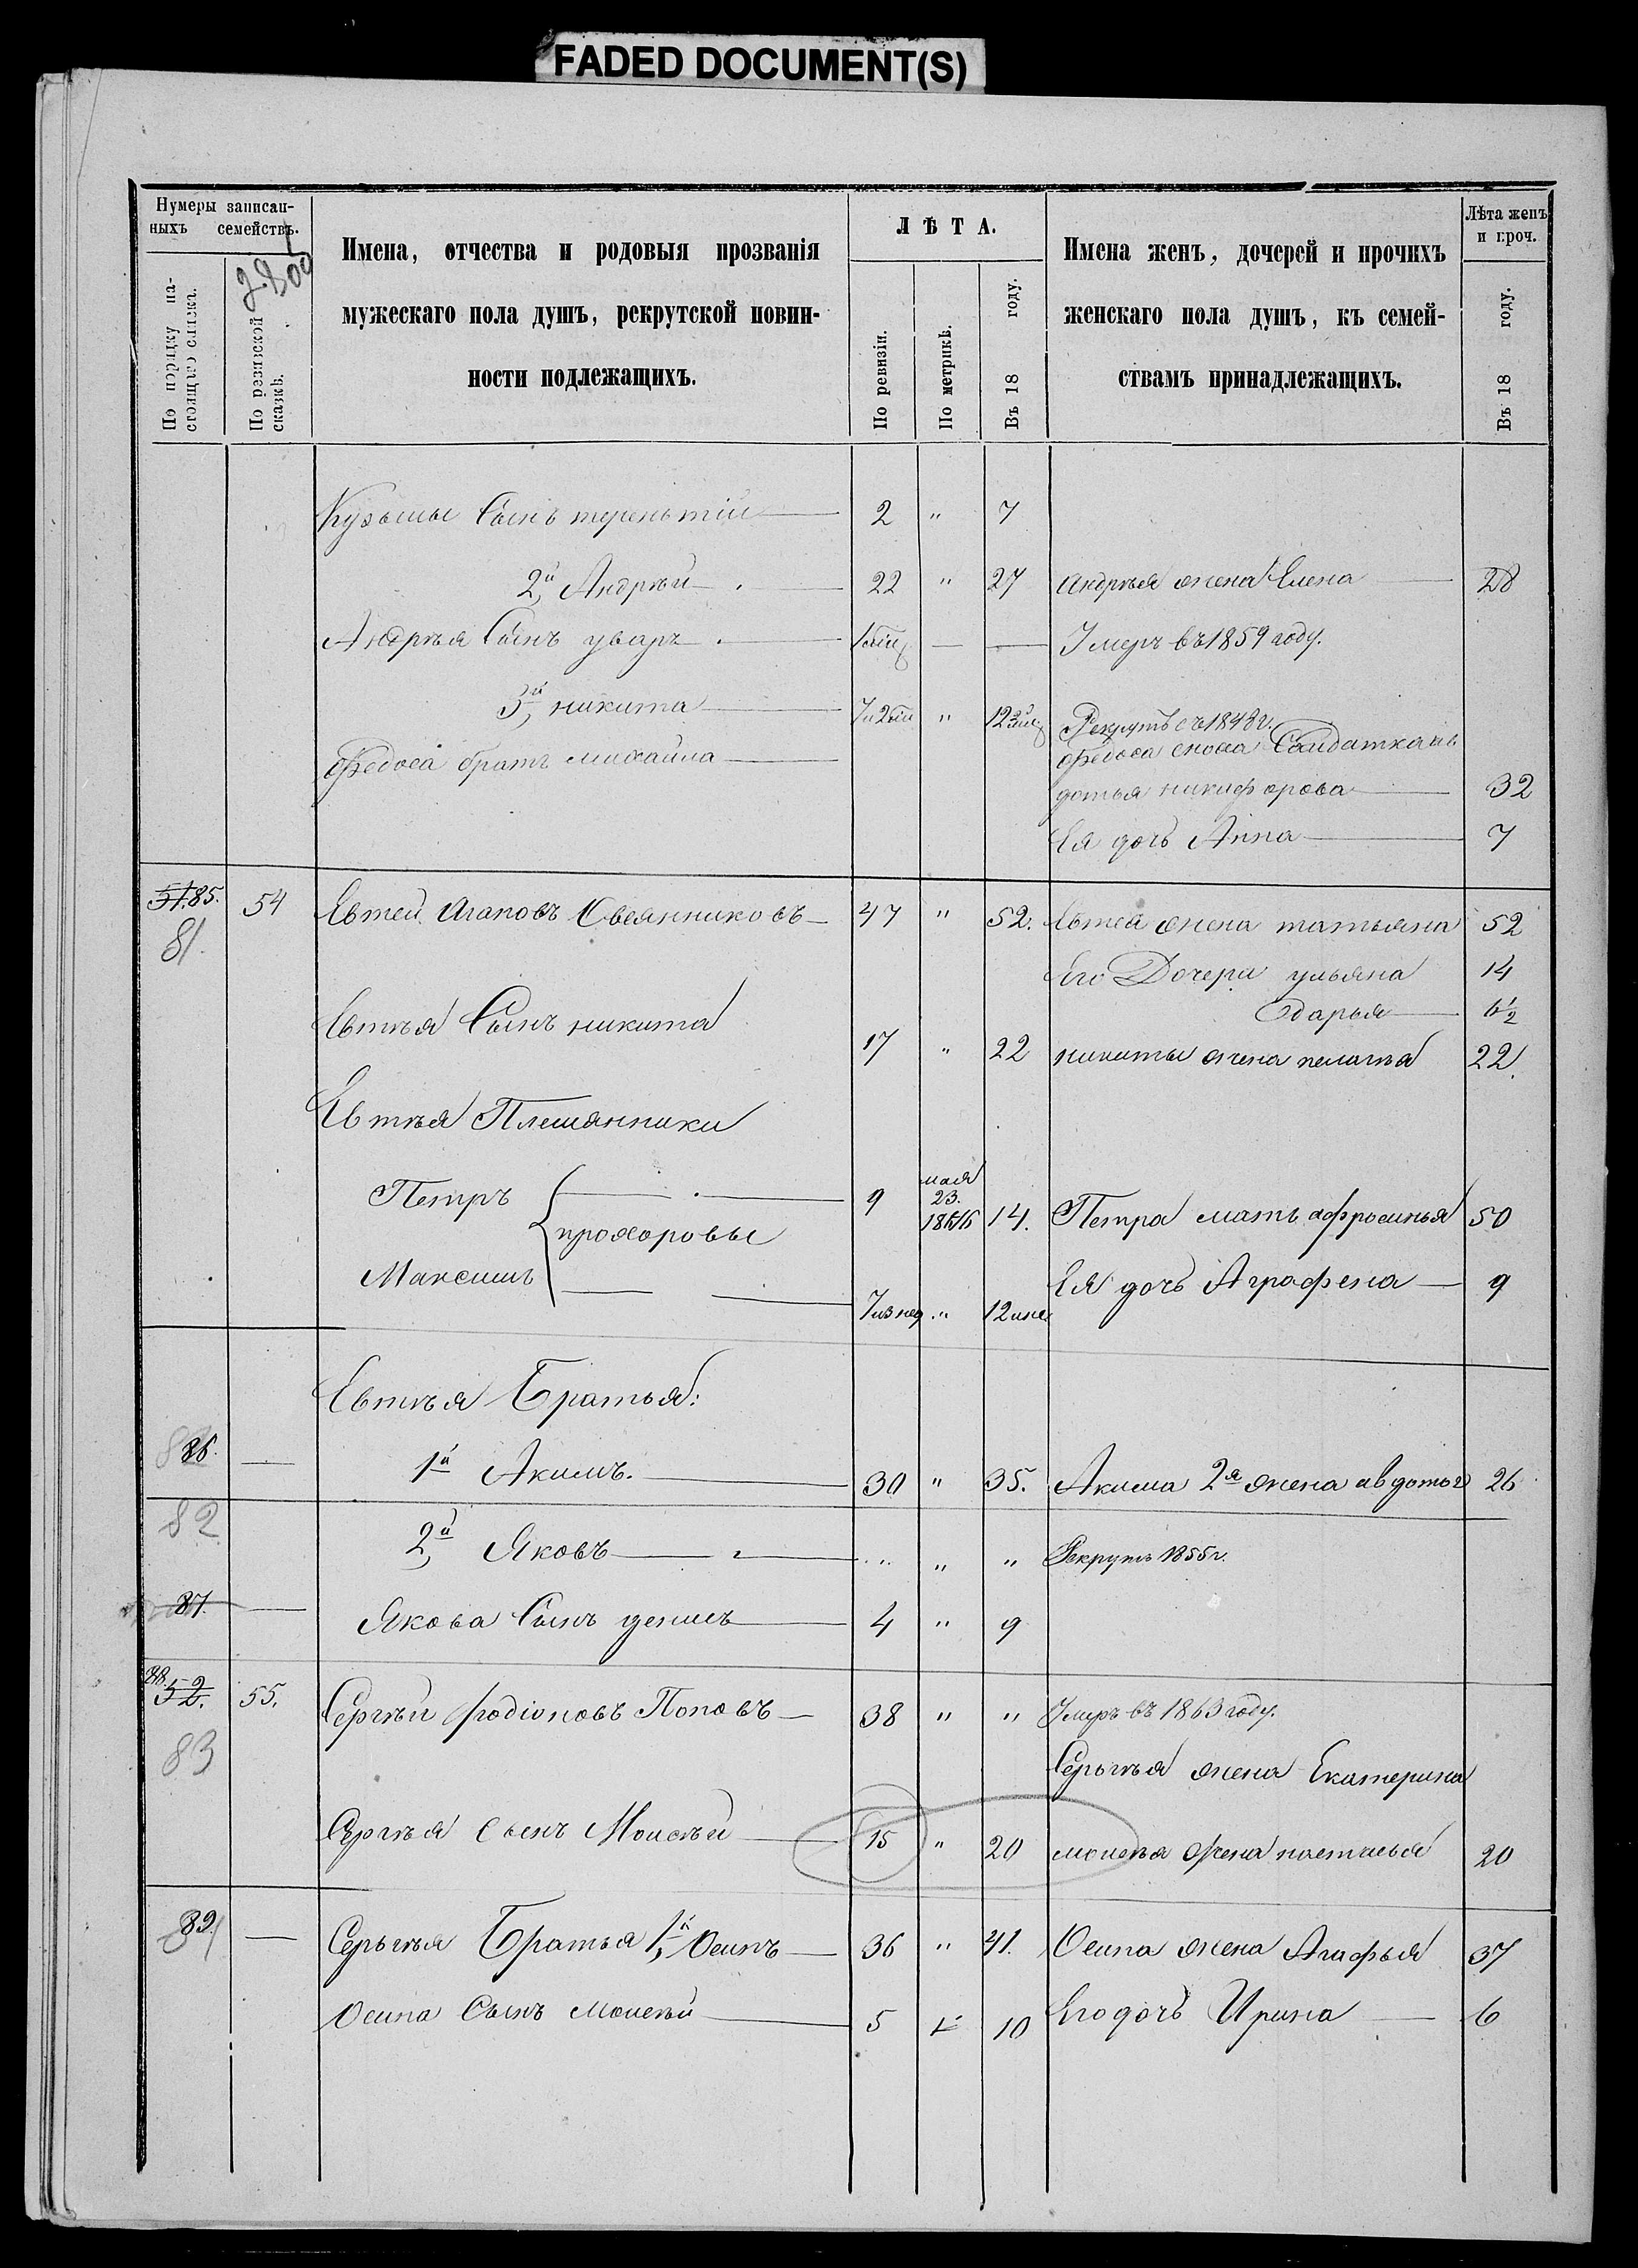 FADED DOCUMENT(S)
Нумеры записан-
ныхъ семействъ.
По порядку на-
стоящаго списка.
По ревизской
сказкѣ.
Имена, отчества и родовыя прозванія
мужескаго пола душъ, рекрутской повин-
ности подлежащихъ.
ЛѢТА.
По ревизіи.
По метрикѣ.
Въ 18 году.
Имена женъ, дочерей и прочихъ
женскаго пола душъ, къ семей-
ствамъ принадлежащихъ.
Лѣта женъ
и проч.
Въ 18 году.
Кузьмы Сынъ терентій 2 " 7
2й Андрей 22 " 27 андрѣя жена Елена 28
Андрѣя Сынъ уваръ — — Умеръ въ 1859 году.
3й никита "
Рекрутъ съ 1848 г.
Федоса братъ михайла Федоса сноха Солдатка ав
дотья никифорова 32
Ея дочь Анна 7
51. 85. 54 Евтей Агаповъ Овсянниковъ 47 " 52. Евтея жена татьяна 52
81.
Его Дочери ульяна 14
дарья
Евтѣя Сынъ никита 17 " 22 никиты жена пелагея 22.
Евтѣя Племянники
Петръ 9 мая 23. 14. Петра мать афросинья 50
прохоровы
Максимъ " Ея дочь Аграфена 9
Евтѣя Братья:
86. — 1й Акимъ. 30 " 35. Акима 2я жена авдотья 26
82
2й Яковъ " " " Рекрутъ 1855 г.
87. — Якова Сынъ денисъ 4 " 9
88. 52. 55. Сергѣй родіоновъ Поповъ 38 " " Умеръ въ 1863 году.
83
Сергѣя жена Екатерина
Сергѣя сынъ Моисѣй 15 " 20 моисѣя жена настасья 20
89. — Сергѣя Братья 1й Осипъ 36 " 41. Осипа жена Агафья 37
Осипа Сынъ Моисѣй 5 10 Его дочь Ирина 6